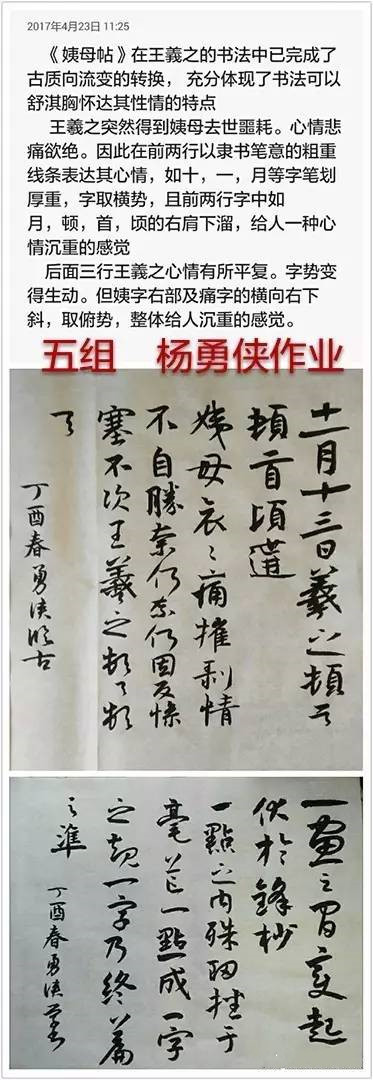 2017年4月23日 11:25
《姨母帖》在王羲之的书法中已完成了
古质向流变的转换，充分体现了书法可以
舒淇胸怀达其性情的特点
王羲之突然得到姨母去世噩耗。心情悲
痛欲绝。因此在前两行以隶书笔意的粗重
线条表达其心情，如十，一，月等字笔划
厚重，字取横势，且前两行字中如
月，顿，首，顷的右肩下溜，给人一种心
情沉重的感觉
后面三行王羲之心情有所平复。字势变
得生动。但姨字右部及痛字的横向右下
斜，取俯势，整体给人沉重的感觉。
五组 杨勇侠作业
十一月十三日羲之頓首
頓首頃遘
姨母哀〻痛摧剥情
不自勝奈何奈何因反慘
塞不次王羲之頓首頓
首
丁酉春勇侠临古
一畫之間變起
伏於鋒杪
一點之内殊衄挫于
毫芒一點成一字
之規一字乃終篇
之準
丁酉春勇侠书